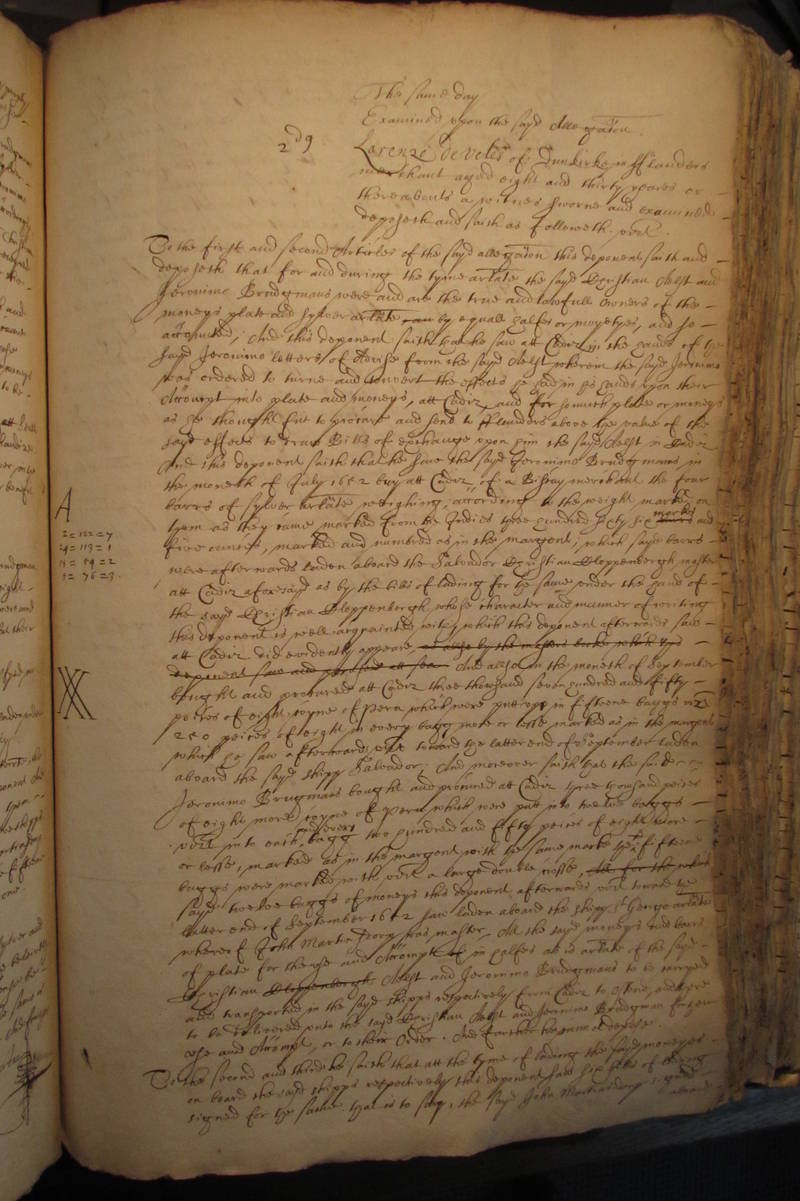 The same day
Examined upon the sayd allegation.
2d 9
Lorenzo de Veles of Dunkirke in fflanders
merchant aged eight and thirty yeares or
thereabouts a witnes sworne and examined
deposeth and saith as followeth vizt.
To the first and second Articles of the sayd allegation this deponent saith and
deposeth that for and during the tyme arlate the sayd Christian Aelst and
Jeronimo Brudegmans were and are the true and lawfull owners of the
moneys plate and sylver arlate by equall halfes or moyetyes, and so
accompted, And this deponent saith that he saw att Cadiz in the hands of the
sayd Jeronimo letters of Advise from the sayd Aelst wherein the sayd Jeronimo
was ordered to turne and convert the effects he had in his hands upon their
Accompt into plate and moneys, att Cadiz, and for somuch plate or moneys
as he thought fitt to procure and send to fflanders above the value of the
sayd effects to draw Bills of exchange upon him the sayd Aelst in Cadiz
And this deponent saith that he saw the sayd Jeronimo Brudegmans in
the moneth of July 1652 buy att Cadiz, of a Biscay merchant the four
barrs of sylver arlate weighing, according to the weight marked on
A
them as they came marked from the Indies three hundred sixty six markes and
2 = 122 = 7
24 = 113 = 1
five ounces, marked and numbred as in the margent, which sayd barrs
were afterwards laden aboard the Salvador Christian Cloppenbergh master
att Cadiz aforesayd as by the bills of lading for the same under the hand of
the sayd Christian Cloppenbergh whose character and manner of writing
this deponent is well acquainted with, which this deponent afterwards saw
att Cadiz did evidently appeare or also by the masters booke which this
deponent saw and perused att sea And allso in the moneth of September
bought and procured att Cadiz three thousand seven hundred and fifty
XX
peeces of eight, coyne of Peru which were putt up in fifteene baggs vizt
250 peeces of eight in every bagg more or lesse marked as in the margent
which he saw afterwards vizt toward the latter end of September laden
aboard the sayd shipp Salvador; And moreover saith that the said
Jeronimo Brugmans bought and procured att Cadiz three thousand peices
of eight more coyne of Peru which were putt into twelve baggs
vizt into each and every bagg two hundred and fifty peices of eight more
or lesse, marked as in the margent with the same marke the fifteene
baggs were marked with, vizt a large double crosse, All for the which
sayd twelve baggs of moneys this deponent afterwards vizt towards the
latter end of September 1652 saw laden aboard the shipp St George arlate
whereof John Martin Dorp was master, All the sayd moneys and barrs
of plate for the use and Accompt in halfes as is arlate of the sayd
Christian Cloppenbergh Aelst and Jeronimo Brudegmans to be carryed
and transported in the sayd shipps respectively from Cadiz to Ostend, and there
to be delivered unto the sayd Christian Aelst and Jeronimo Brudegmans for their
use and Accompt, or to their Order. And further he cannot depose.
To the second and third he saith that att the tyme of lading the sayd moneyes
on board the said shipps respectively this deponent saw six bills of lading
signed for the same, that is to say, the sayd John Martinsdorp signed
aboard